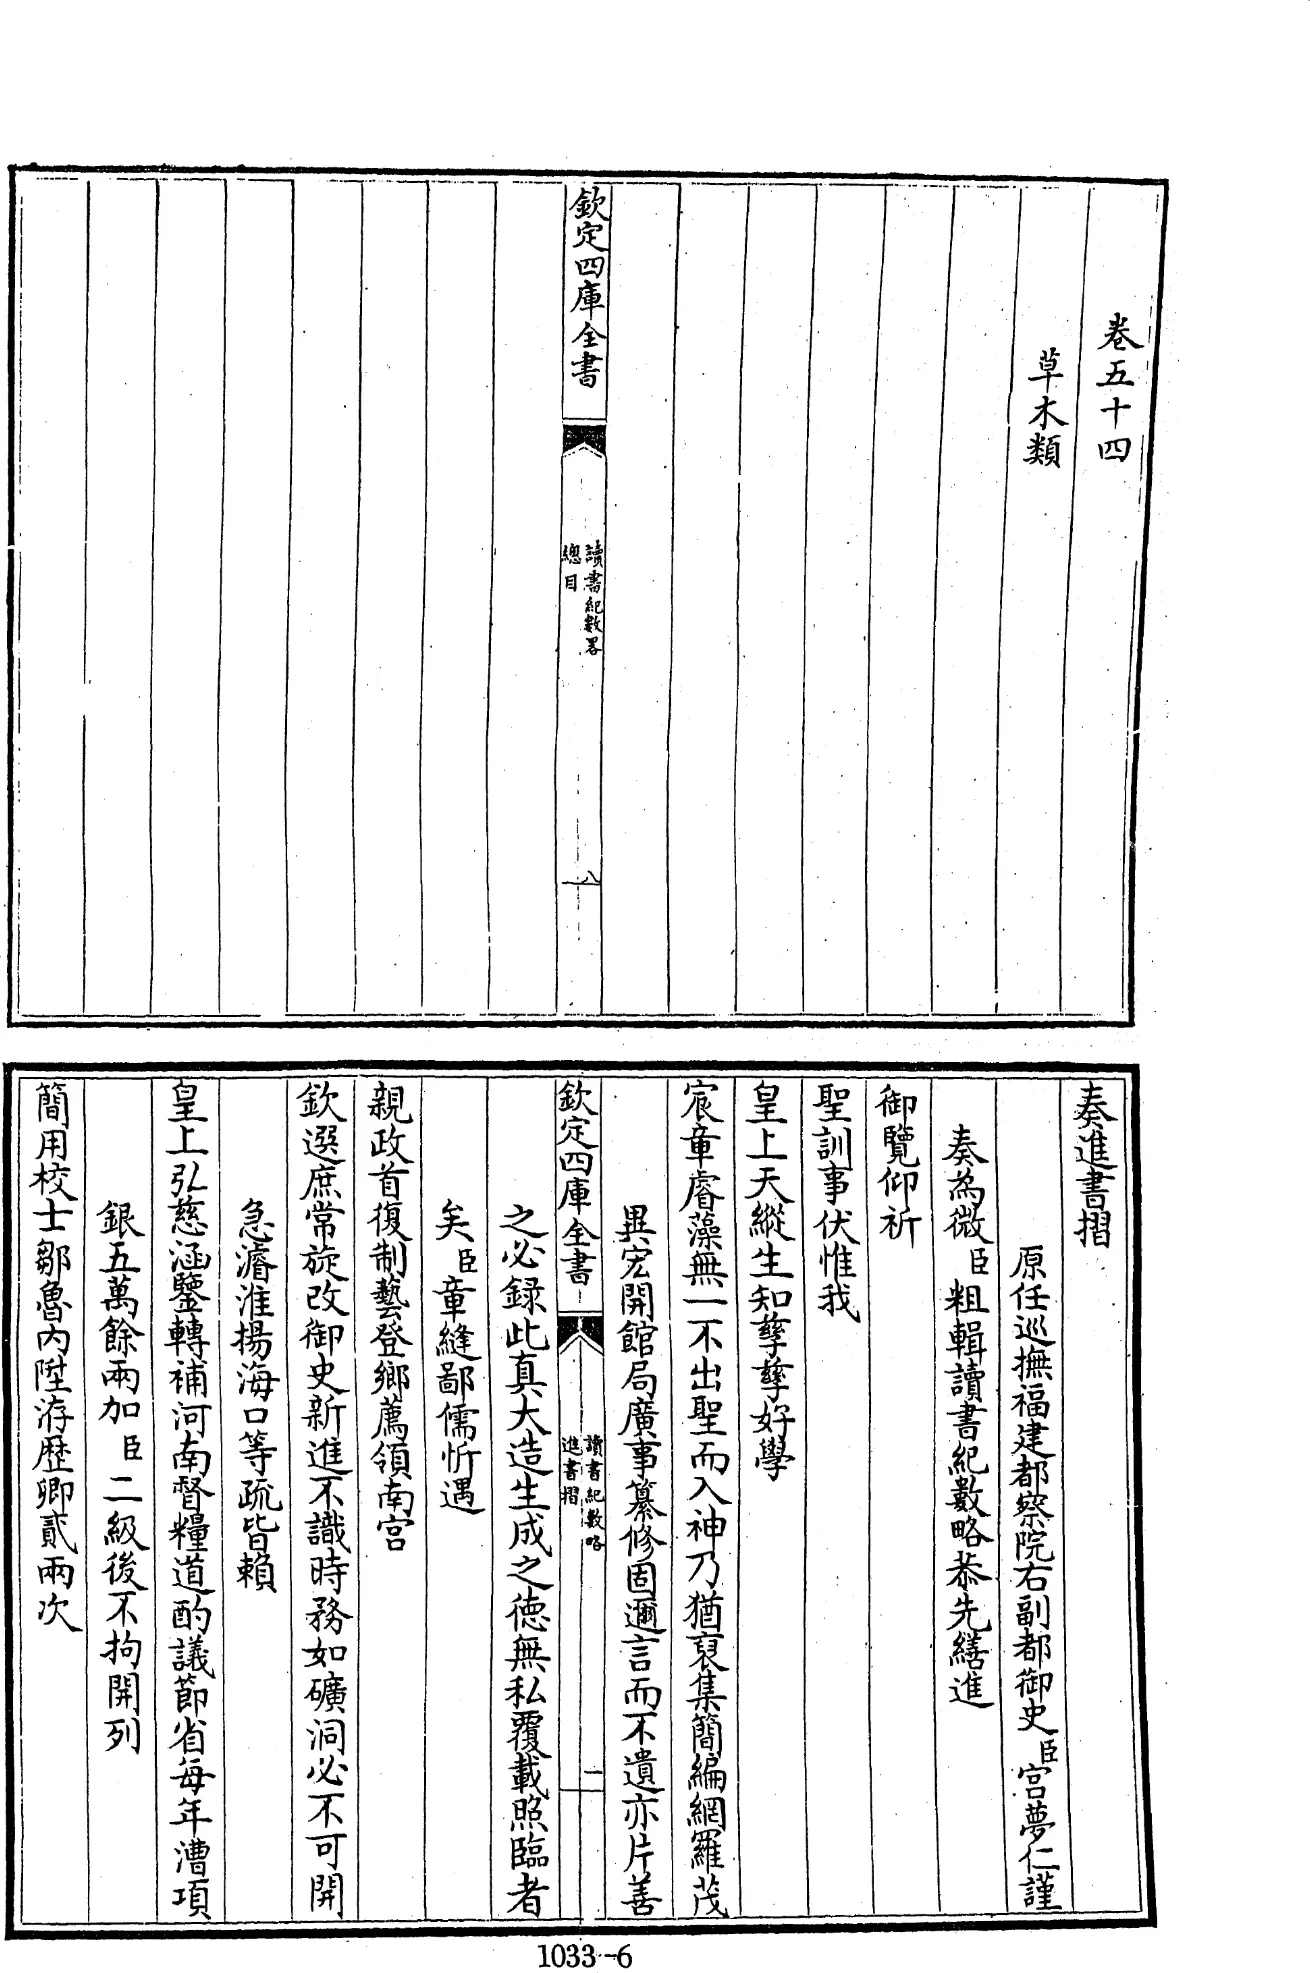 卷五十四
草木類
欽定四庫全書
讀書紀數畧
總目
八
奏進書摺
原任巡撫福建都察院右副都御史臣宮夢仁謹
奏為微臣粗輯讀書紀數略恭先繕進
御覽仰祈
聖訓事伏惟我
皇上天縱生知孳孳好學
宸章睿藻無一不出聖而入神乃猶裒集簡編網羅茂
異宏開館局廣事纂修固邇言而不遺亦片善
欽定四庫全書
讀書紀數略
進書摺
一
之必録此真大造生成之德無私覆載照臨者
矣臣章縫鄙儒忻遇
親政首復制藝登鄉薦領南宮
欽選庶常旋改御史新進不識時務如礦洞必不可開
急濬淮揚海口等疏皆賴
皇上弘慈涵鑒轉補河南督糧道酌議節省每年漕項
銀五萬餘兩加臣二級後不拘開列
簡用校士鄒魯內陞洊歷卿貳兩次
1033-6